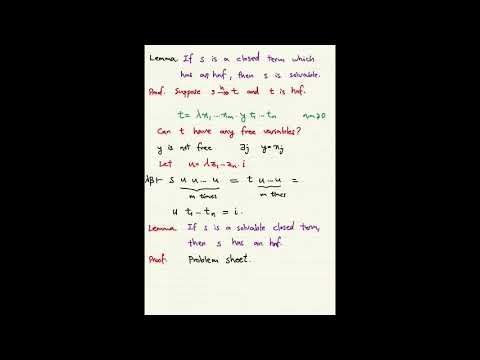 Lemma If s is a closed term which
has an hnf, then s is solvable.
Proof. Suppose s ↠ʰ t and t is hnf.
t = λx₁…xₘ. y t₁…tₙ n,m≥0
Can t have any free variables?
y is not free ∃j y=xⱼ
Let u = λz₁…zₙ. i
λβ ⊢ s u u … u = t u … u =
m times m times
u t₁ … tₙ = i.
Lemma If s is a solvable closed term,
then s has an hnf.
Proof. Problem sheet.